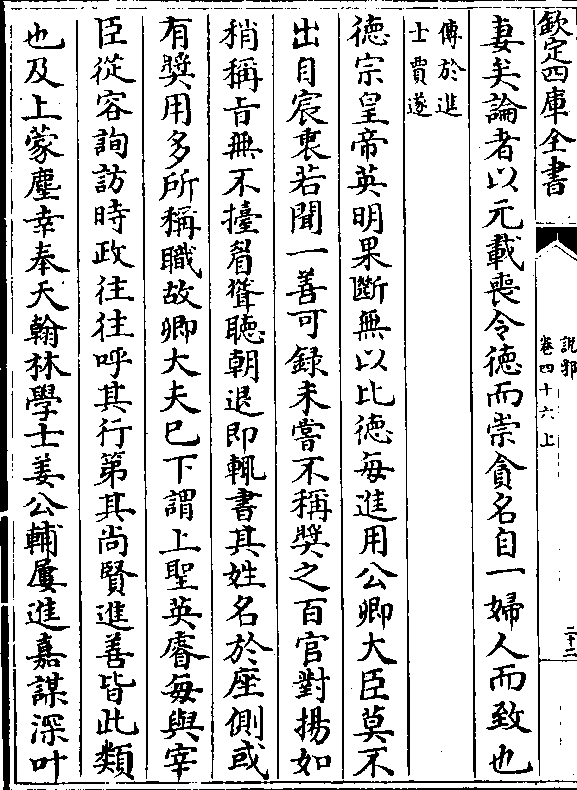 欽定四庫全書
說郛
卷四十六上
二十二
妻矣論者以元載喪令徳而崇貪名自一婦人而致也
傳於進
士賈遂
徳宗皇帝英明果斷無以比徳每進用公卿大臣莫不
出自宸衷若聞一善可録未嘗不稱奬之百官對揚如
稍稱㫖無不擡眉聳聽朝退即輒書其姓名於座側或
有奬用多所稱職故卿大夫已下謂上聖英睿每與宰
臣從容詢訪時政往往呼其行第其尚賢進善皆此類
也及上蒙塵幸奉天翰林學士姜公輔屢進嘉謀深叶